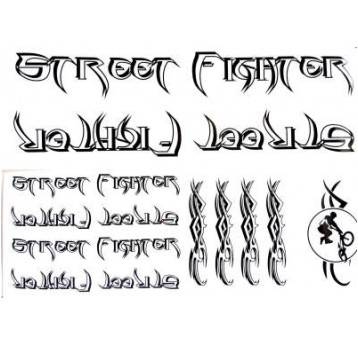 Street Fighter
Street Fighter
Street Fighter
Street Fighter
Street Fighter
Street Fighter